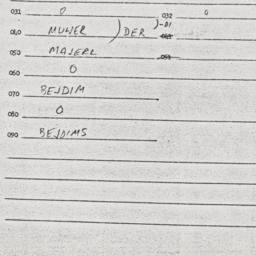 031 0 032 0
040 MULLER ) DER )-DI 041
050 MAJERL 051
060 0
070 BEJDIM
080 0
090 BEJDIMS